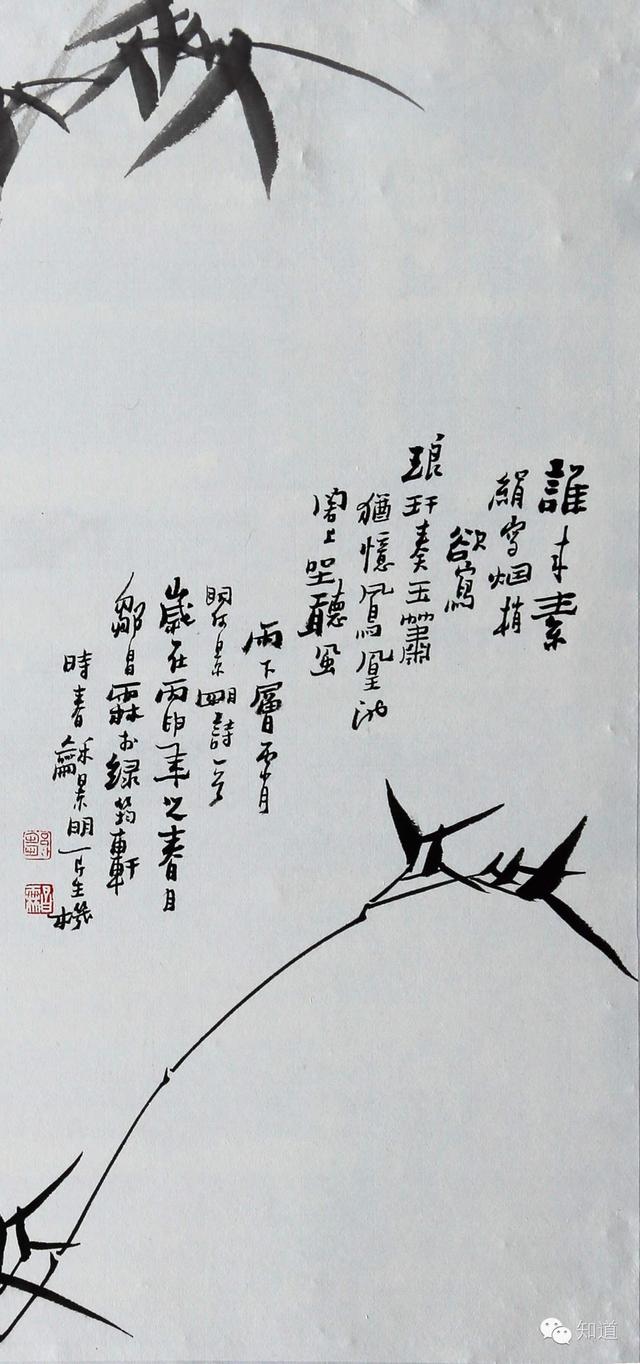 誰 素
絹寫烟梢
欲寫
琅玕奏玉簫
猶憶鳳凰池
閣上坐聽風
雨下層霄
景明詩一首
歲在丙申年之春月
鄒昌霖於綠筠軒
時春龢景明一片生機
知道